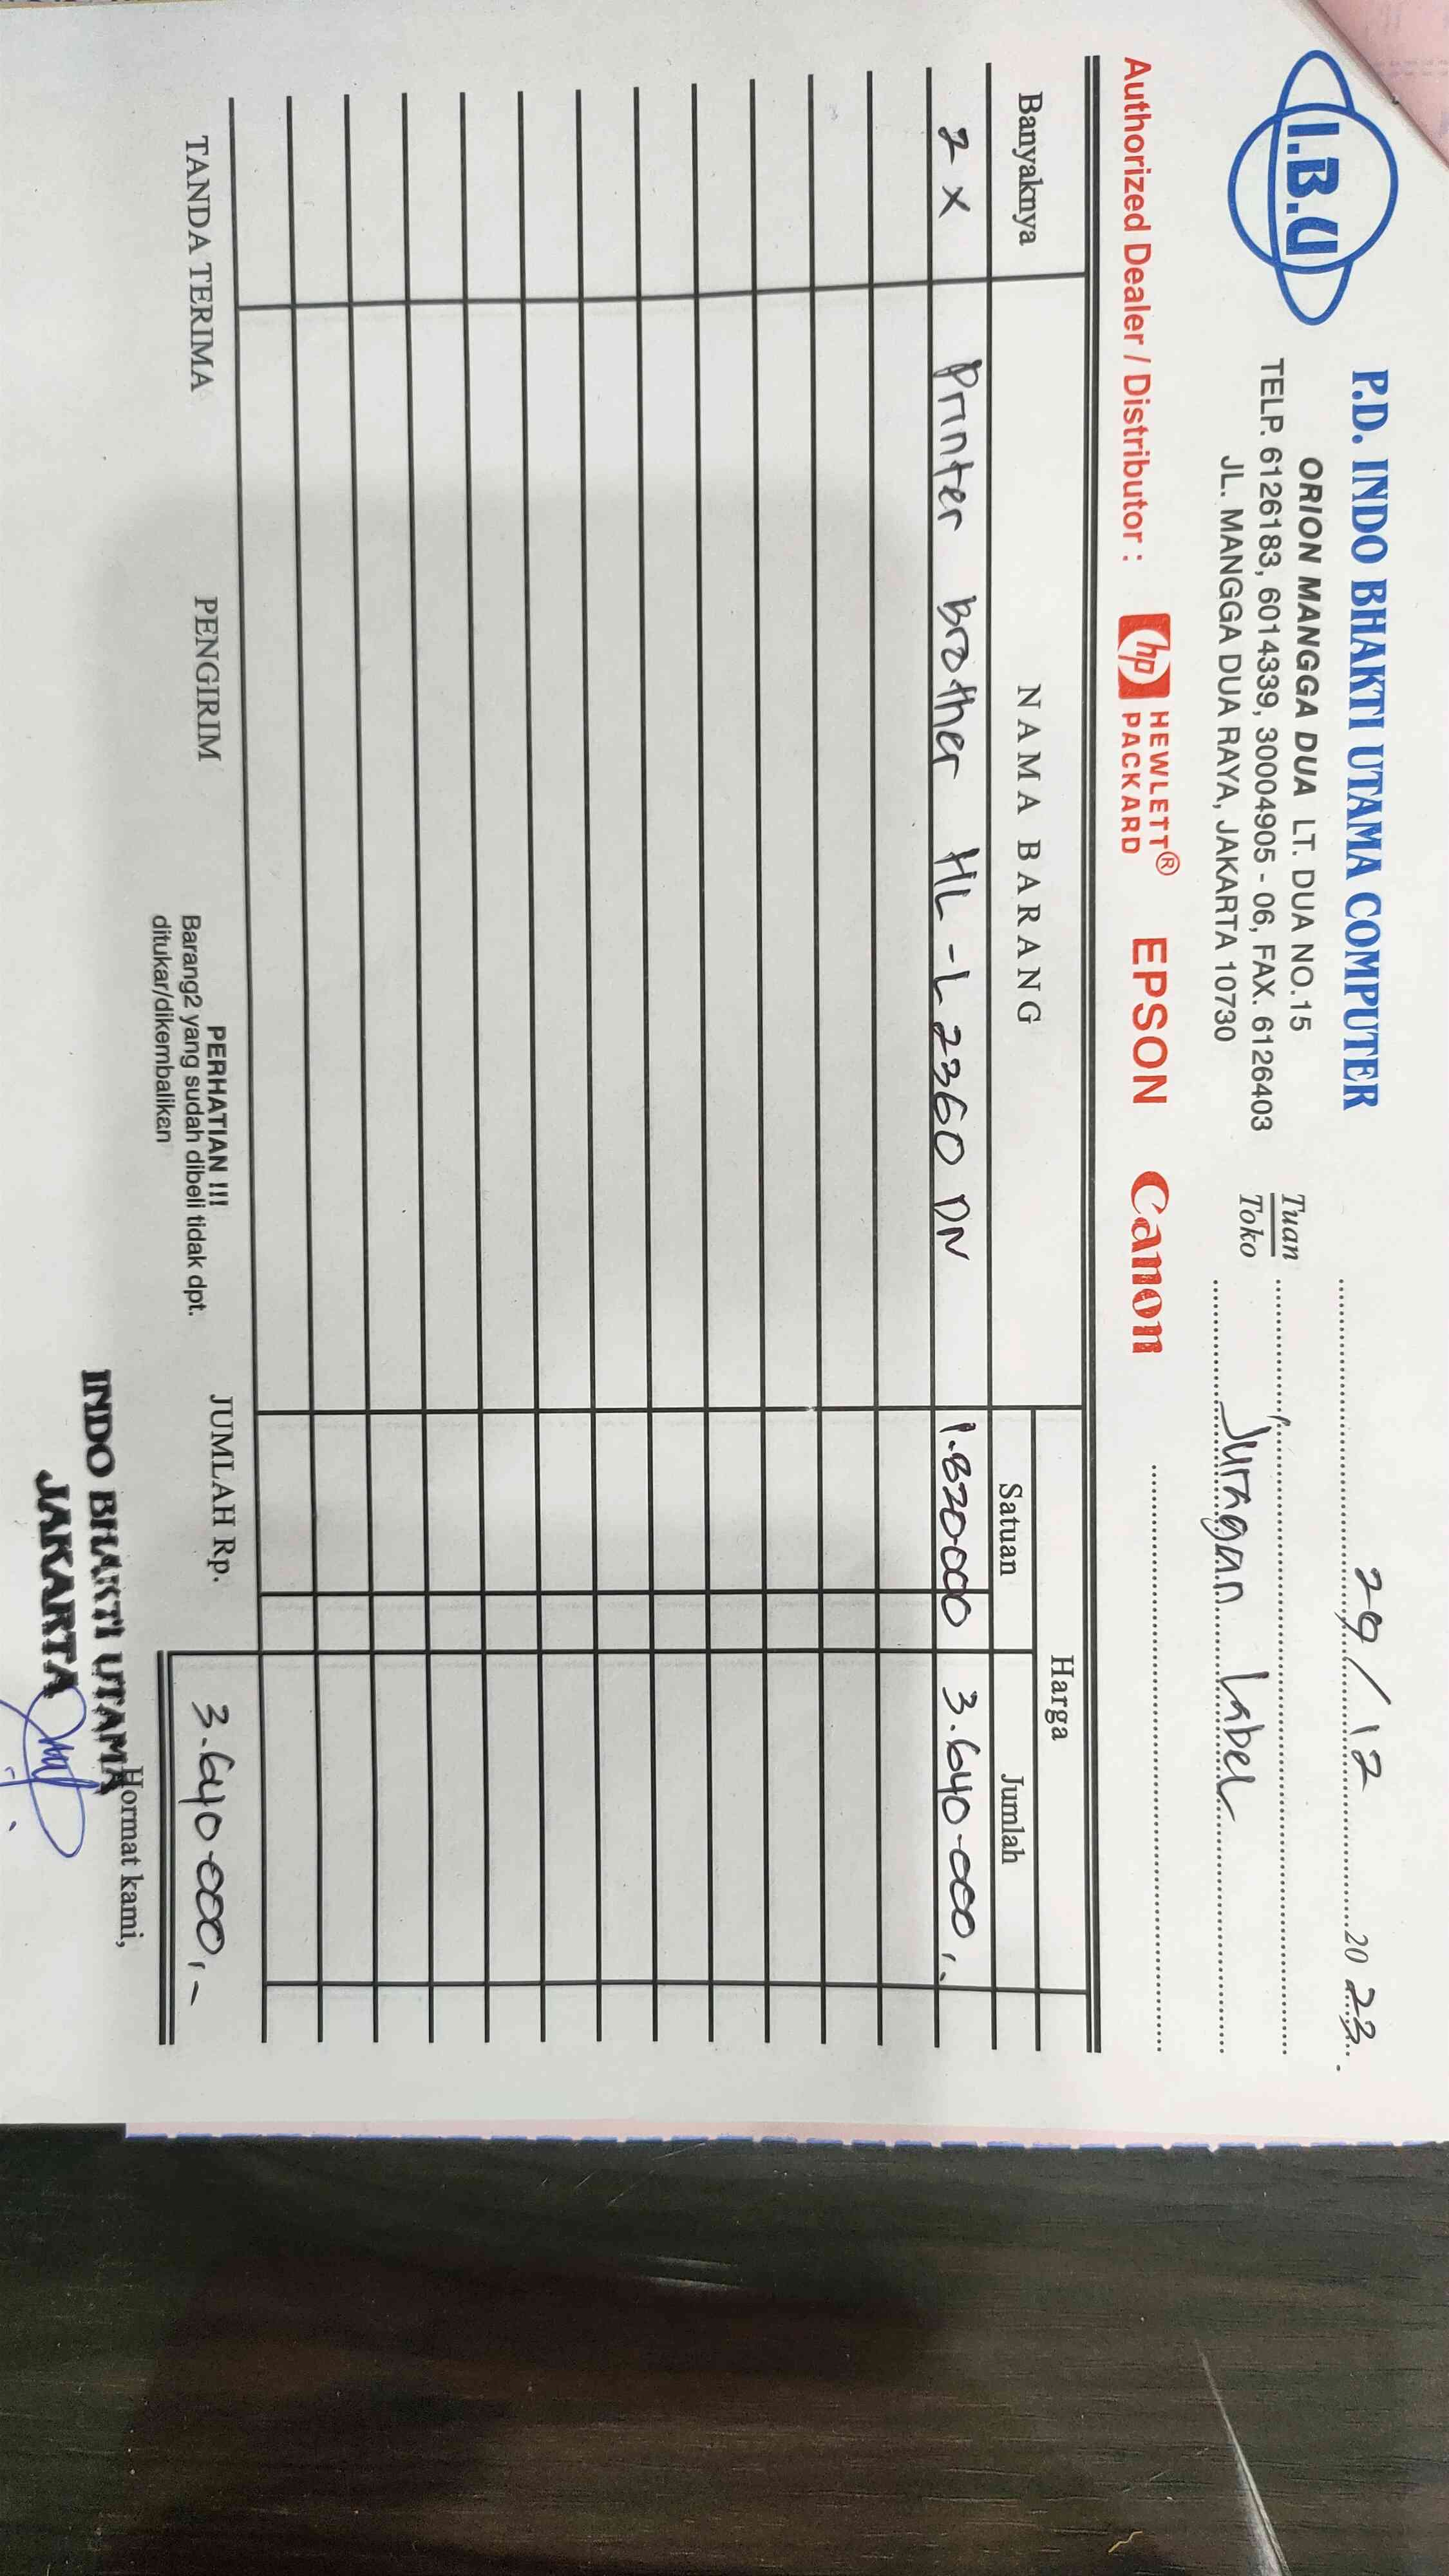 I.B.U
P.D. INDO BHAKTI UTAMA COMPUTER
ORION MANGGA DUA LT. DUA NO.15
TELP. 6126183, 6014339, 30004905 - 06, FAX. 6126403
JL. MANGGA DUA RAYA, JAKARTA 10730
29/12 2023
Tuan
Toko
Juragan Label
Authorized Dealer / Distributor : hp HEWLETT® PACKARD EPSON Canon
Banyaknya NAMA BARANG Harga
Satuan Jumlah
2 x Printer Brother HL-L2360 DN 1.820.000 3.640.000,-
TANDA TERIMA PENGIRIM
PERHATIAN !!!
Barang2 yang sudah dibeli tidak dpt.
ditukar/dikembalikan
JUMLAH Rp. 3.640.000,-
Hormat kami,
INDO BHAKTI UTAMA
JAKARTA